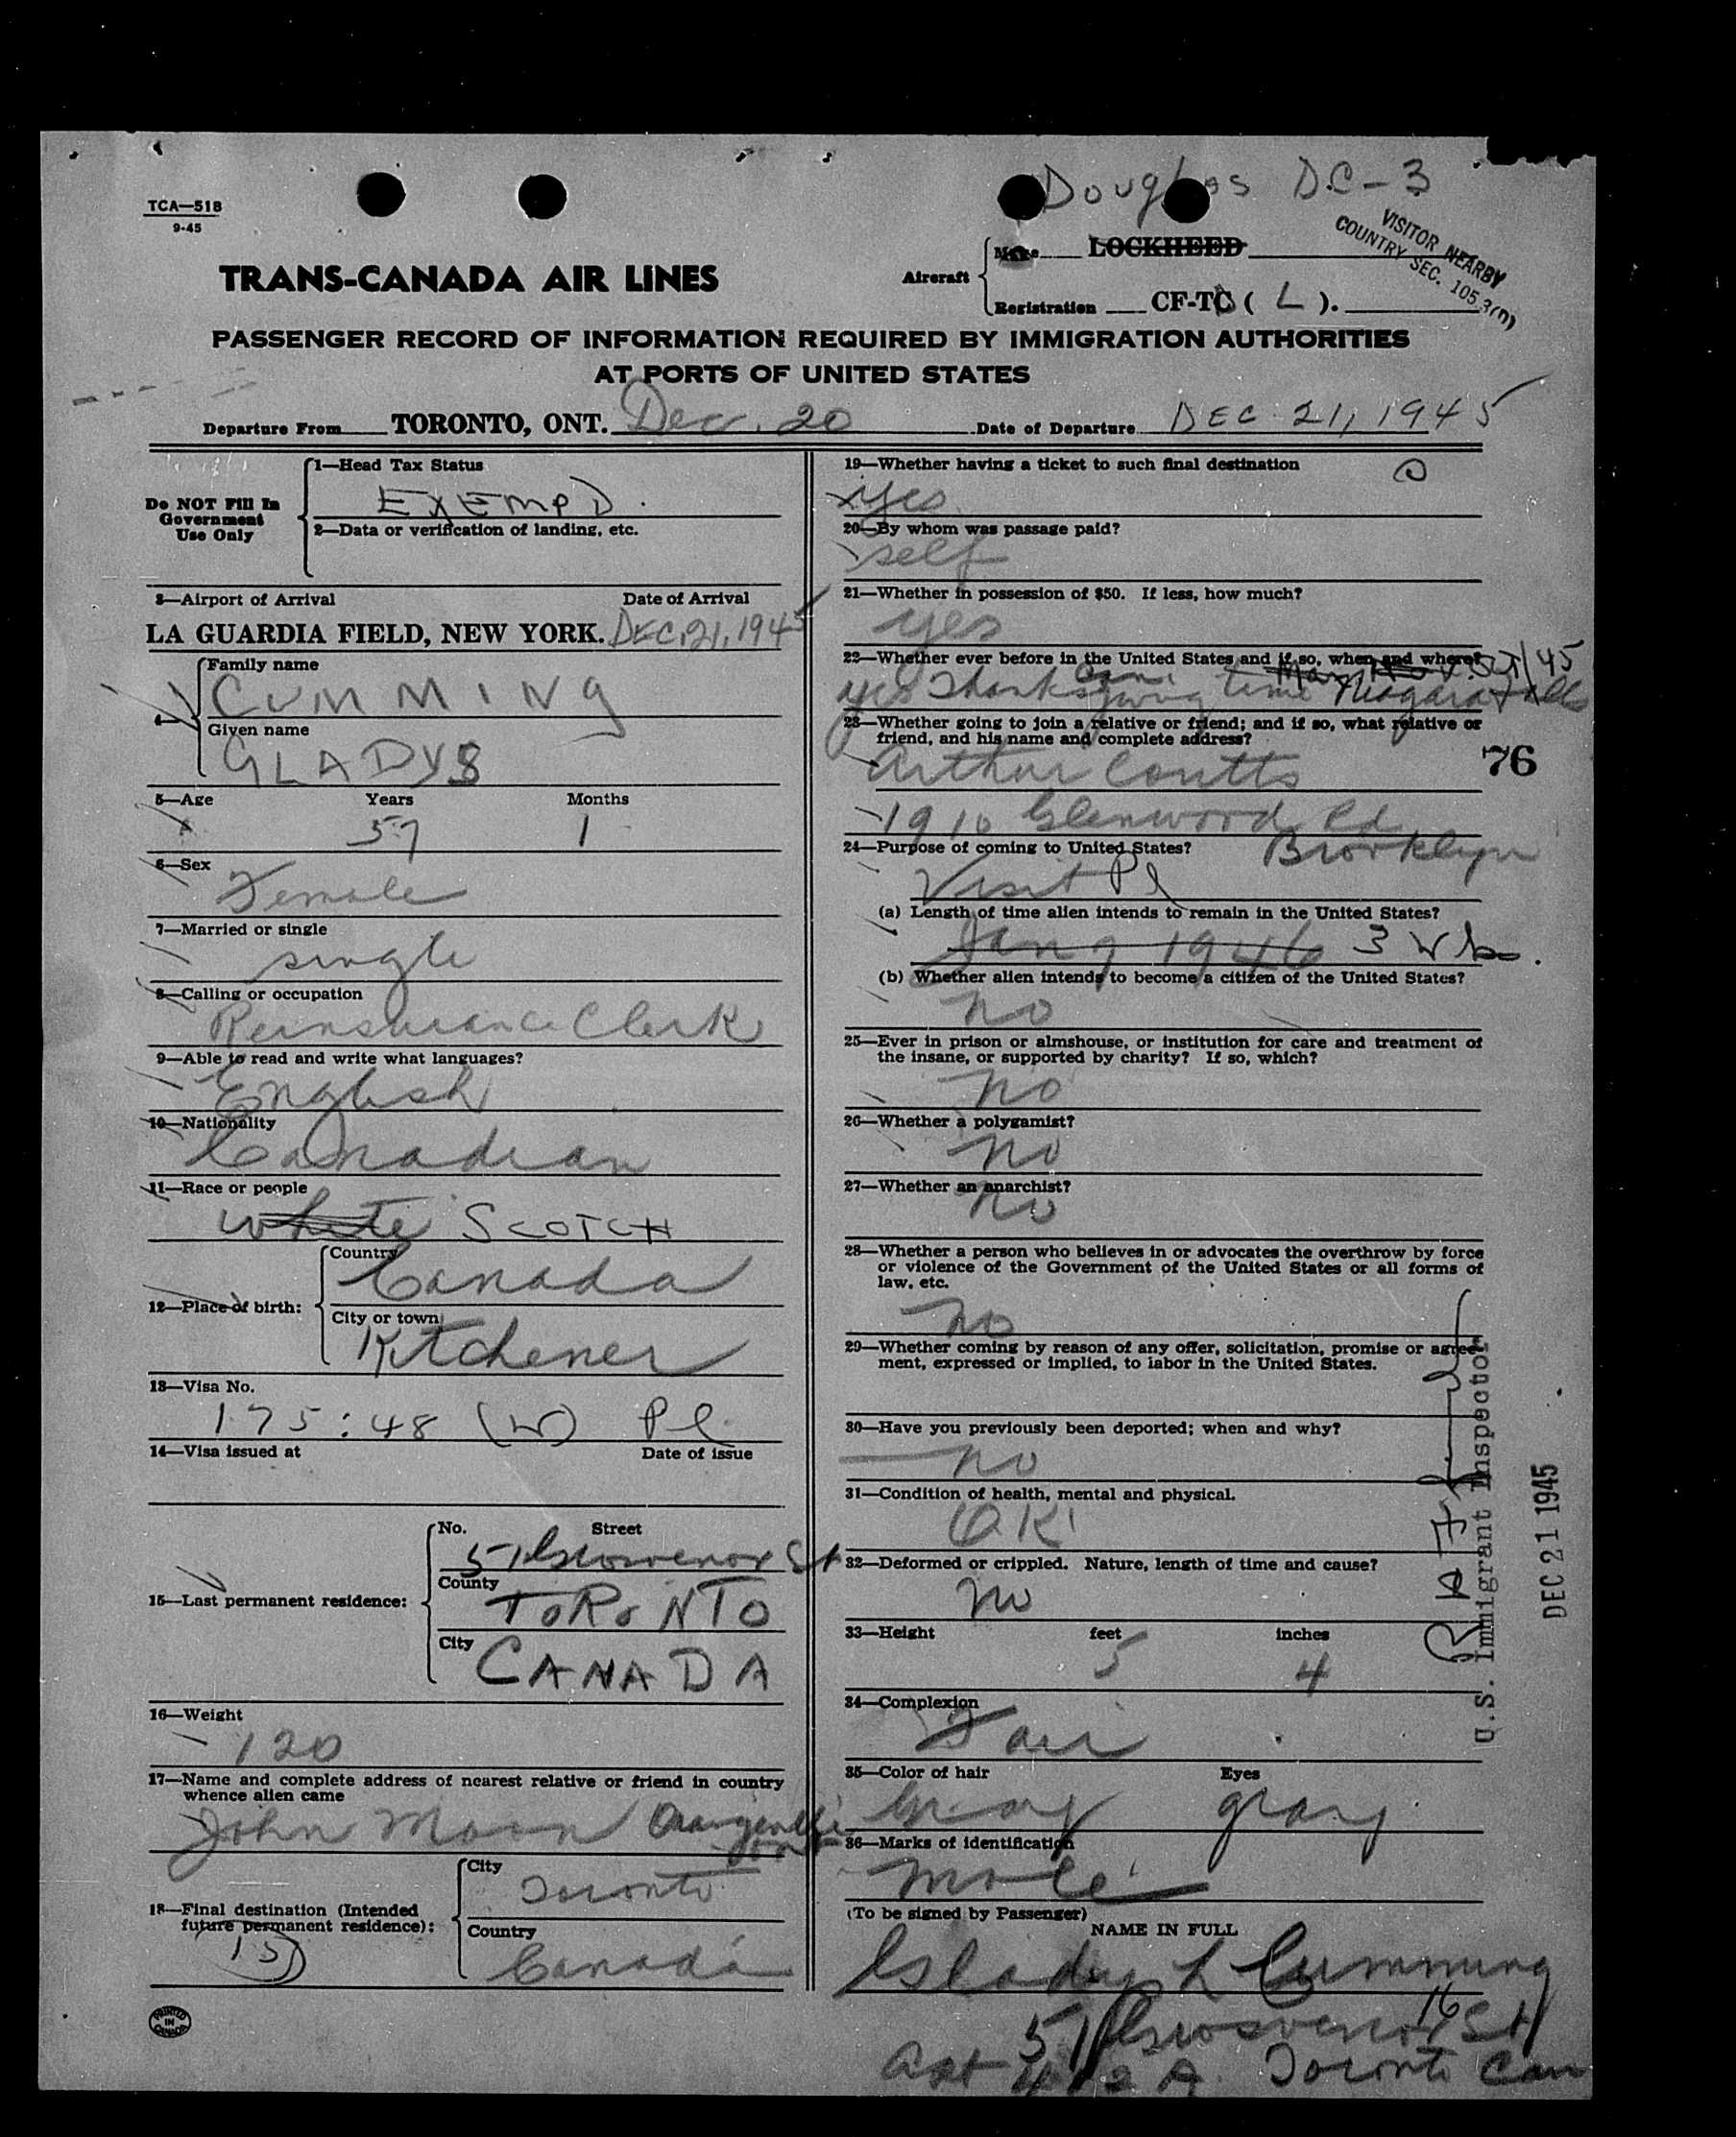 Douglas D.C-3
TCA—518
9-45
VISITOR NEARBY
COUNTRY SEC. 105.3(n)
Make LOCKHEED
TRANS-CANADA AIR LINES
Aircraft
Registration CF-TC ( L ).
PASSENGER RECORD OF INFORMATION REQUIRED BY IMMIGRATION AUTHORITIES
AT PORTS OF UNITED STATES
Departure From TORONTO, ONT. Dec. 20 Date of Departure DEC 21, 1945
Do NOT Fill In
Government
Use Only
1—Head Tax Status
EXEMPD.
2—Data or verification of landing, etc.
3—Airport of Arrival Date of Arrival
LA GUARDIA FIELD, NEW YORK. DEC. 21, 1945
4—
Family name
CUMMING
Given name
GLADYS
5—Age Years Months
57 1
6—Sex
Female
7—Married or single
single
8—Calling or occupation
Reinsurance Clerk
9—Able to read and write what languages?
English
10—Nationality
Canadian
11—Race or people
white SCOTCH
12—Place of birth:
Country
Canada
City or town
Kitchener
13—Visa No.
175:48 (W) Pl
14—Visa issued at Date of issue
15—Last permanent residence:
No. Street
51 Grosvenor St
County
TORONTO
City
CANADA
16—Weight
120
17—Name and complete address of nearest relative or friend in country
whence alien came
John Moon Orangeville
Ont
18—Final destination (Intended
future permanent residence):
City
Toronto
Country
Canada
PRINTED
IN
CANADA
19—Whether having a ticket to such final destination
yes
20—By whom was passage paid?
self
21—Whether in possession of $50. If less, how much?
yes
22—Whether ever before in the United States and if so, when and where?
yes Thanksgiving time Niagara Falls
Can. /45
23—Whether going to join a relative or friend; and if so, what relative or
friend, and his name and complete address?
Arthur Coutts
1910 Glenwood Rd
Brooklyn
76
24—Purpose of coming to United States?
Visit Pl
(a) Length of time alien intends to remain in the United States?
Jan 7 1946 3 wks.
(b) Whether alien intends to become a citizen of the United States?
no
25—Ever in prison or almshouse, or institution for care and treatment of
the insane, or supported by charity? If so, which?
no
26—Whether a polygamist?
no
27—Whether an anarchist?
no
28—Whether a person who believes in or advocates the overthrow by force
or violence of the Government of the United States or all forms of
law, etc.
no
29—Whether coming by reason of any offer, solicitation, promise or agree-
ment, expressed or implied, to labor in the United States.
30—Have you previously been deported; when and why?
no
31—Condition of health, mental and physical.
O.K.
32—Deformed or crippled. Nature, length of time and cause?
no
33—Height feet inches
5 4
34—Complexion
Fair
35—Color of hair Eyes
Gray gray
36—Marks of identification
mole
(To be signed by Passenger)
NAME IN FULL
Gladys L Cumming
51 Grosvenor St
16
Apt 412 A Toronto Can
U.S. Immigrant Inspector
DEC 21 1945